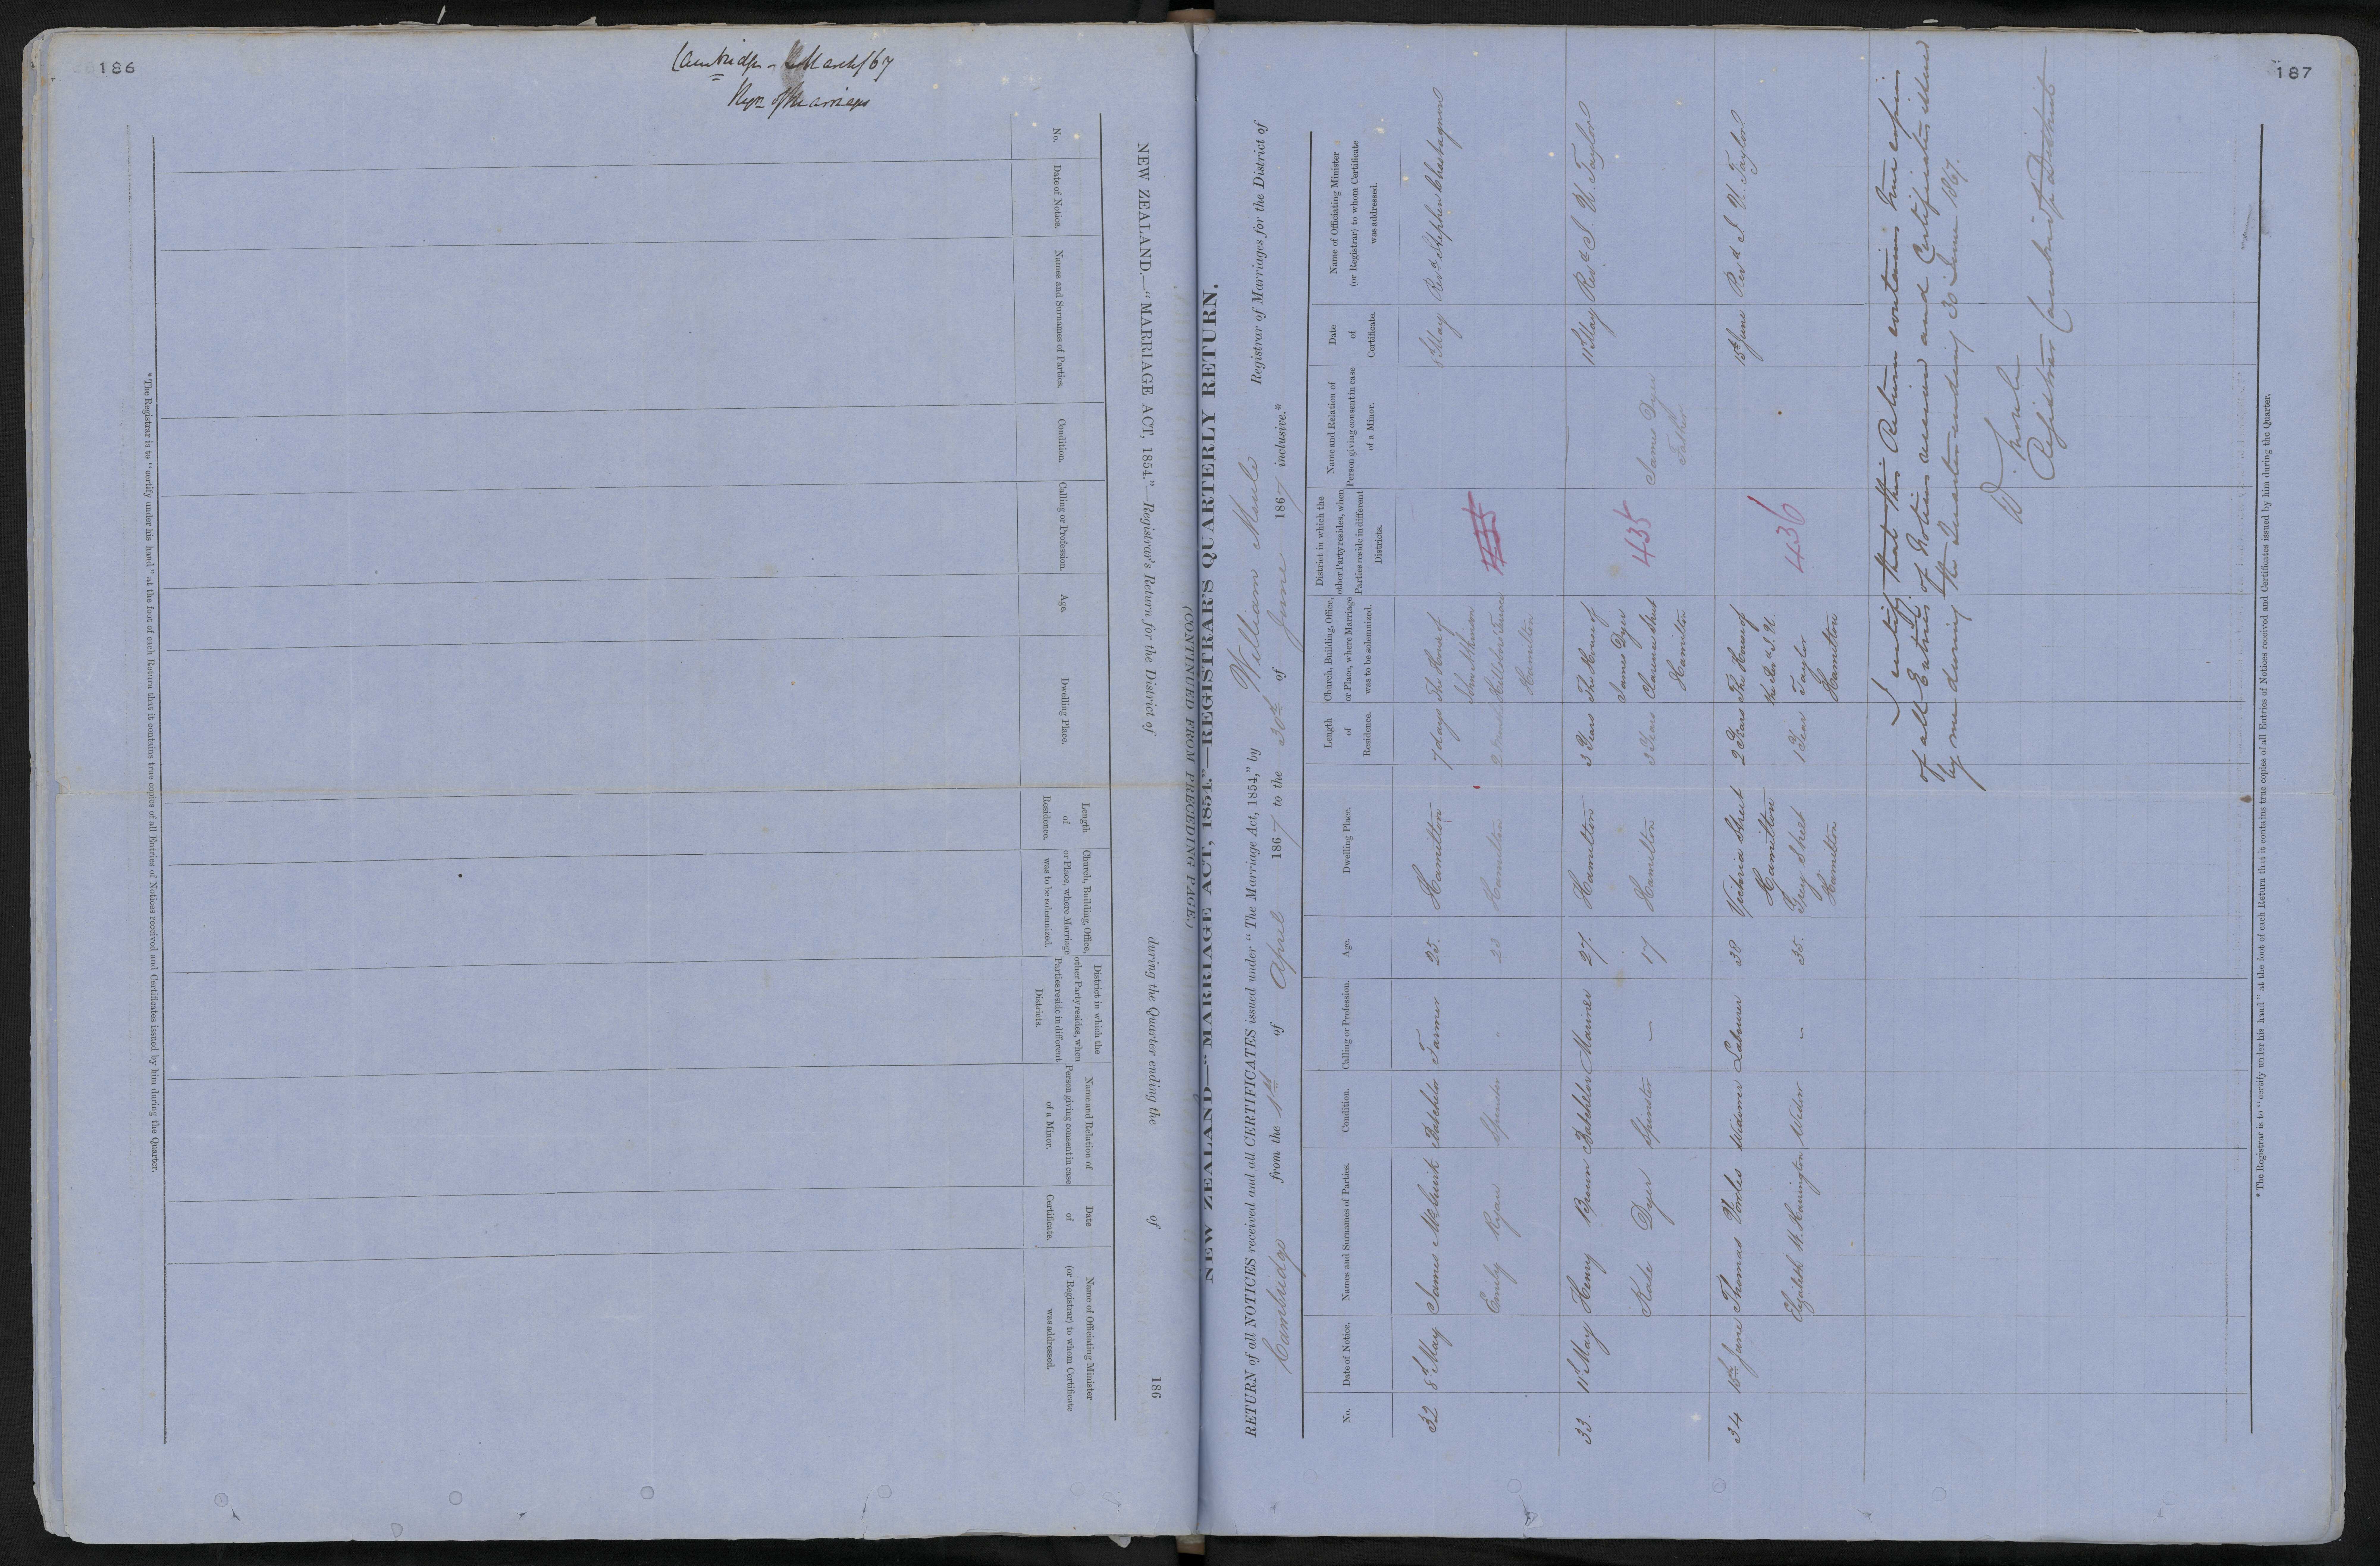 186
Cambridge - March/67
Regn of Marriages
NEW ZEALAND.—"MARRIAGE ACT, 1854."—Registrar's Return for the District of during the Quarter ending the of 186
No.
Date of Notice.
Names and Surnames of Parties.
Condition.
Calling or Profession.
Age.
Dwelling Place.
Length of Residence.
Church, Building, Office, or Place, where Marriage was to be solemnized.
District in which the other Party resides, when Parties reside in different Districts.
Name and Relation of Person giving consent in case of a Minor.
Date of Certificate.
Name of Officiating Minister (or Registrar) to whom Certificate was addressed.
* The Registrar is to "certify under his hand" at the foot of each Return that it contains true copies of all Entries of Notices received and Certificates issued by him during the Quarter.
187
(CONTINUED FROM PRECEDING PAGE.)
NEW ZEALAND—"MARRIAGE ACT, 1854."—REGISTRAR'S QUARTERLY RETURN.
RETURN of all NOTICES received and all CERTIFICATES issued under "The Marriage Act, 1854," by William Maule Registrar of Marriages for the District of
Cambridge from the 1st of April 1867 to the 30th of June 1867 inclusive.*
No.
Date of Notice.
Names and Surnames of Parties.
Condition.
Calling or Profession.
Age.
Dwelling Place.
Length of Residence.
Church, Building, Office, or Place, where Marriage was to be solemnized.
District in which the other Party resides, when Parties reside in different Districts.
Name and Relation of Person giving consent in case of a Minor.
Date of Certificate.
Name of Officiating Minister (or Registrar) to whom Certificate was addressed.
32 8th May James McGuirk Batchelor Farmer 25. Hamilton 7 days The House of John Atkinson 8th May Revd Stephen Chastagnon
Emily Ryan Spinster - 23 Hamilton 2 Hamilton 435
33. 11th May Henry Brown Batchelor Mariner 27. Hamilton 3 Years The House of James Dyer Clarence Street Hamilton 11th May Revd S. W. Taylor
Kate Dyer Spinster — 17 Hamilton 3 Years 435 James Dyer Father
34 15th June Thomas Vowles Widower Labourer 38 Victoria Street Hamilton 2 Years The House of the Revd S. W. Taylor Hamilton 15th June Revd S. W. Taylor
Elizabeth W. Hannington Widow — 35. Grey Street Hamilton 1 Year 436
I certify that this Return contains true copies
of all Entries of Notices received and Certificates issued
by me during the Quarter ending 30 June 1867.
W. Maule
Registrar Cambridge District
* The Registrar is to "certify under his hand" at the foot of each Return that it contains true copies of all Entries of Notices received and Certificates issued by him during the Quarter.